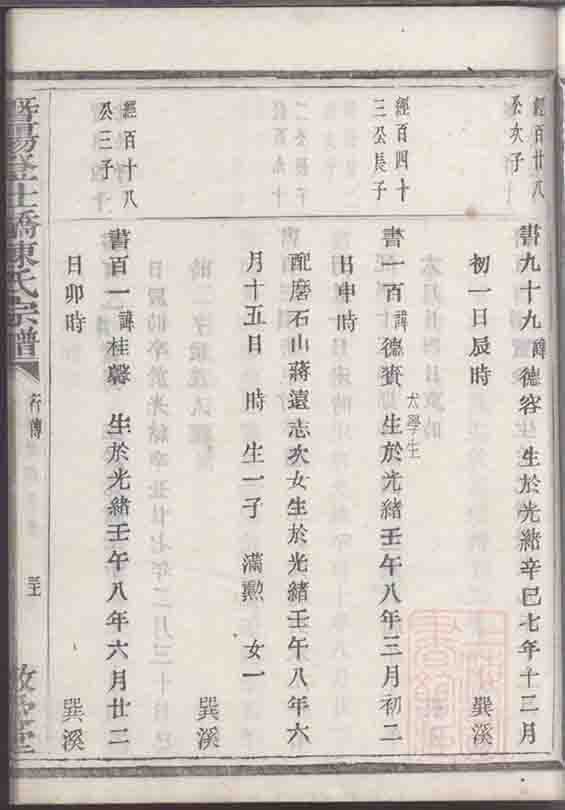 經百廿八
公次子
書九十九諱德容 生於光緒辛巳七年十二月
初一日辰時 巽溪
經百四十
三公長子
書一百諱德賚 太學生 生於光緒壬午八年三月初二
日申時
配磨石山蔣遠志次女生於光緒壬午八年六
月十五日 時 生一子 滿勲 女一
巽溪
經百十八
公三子
書百一諱桂馨 生於光緒壬午八年六月廿二
日卯時 巽溪
暨陽登仕橋陳氏宗譜
行傳